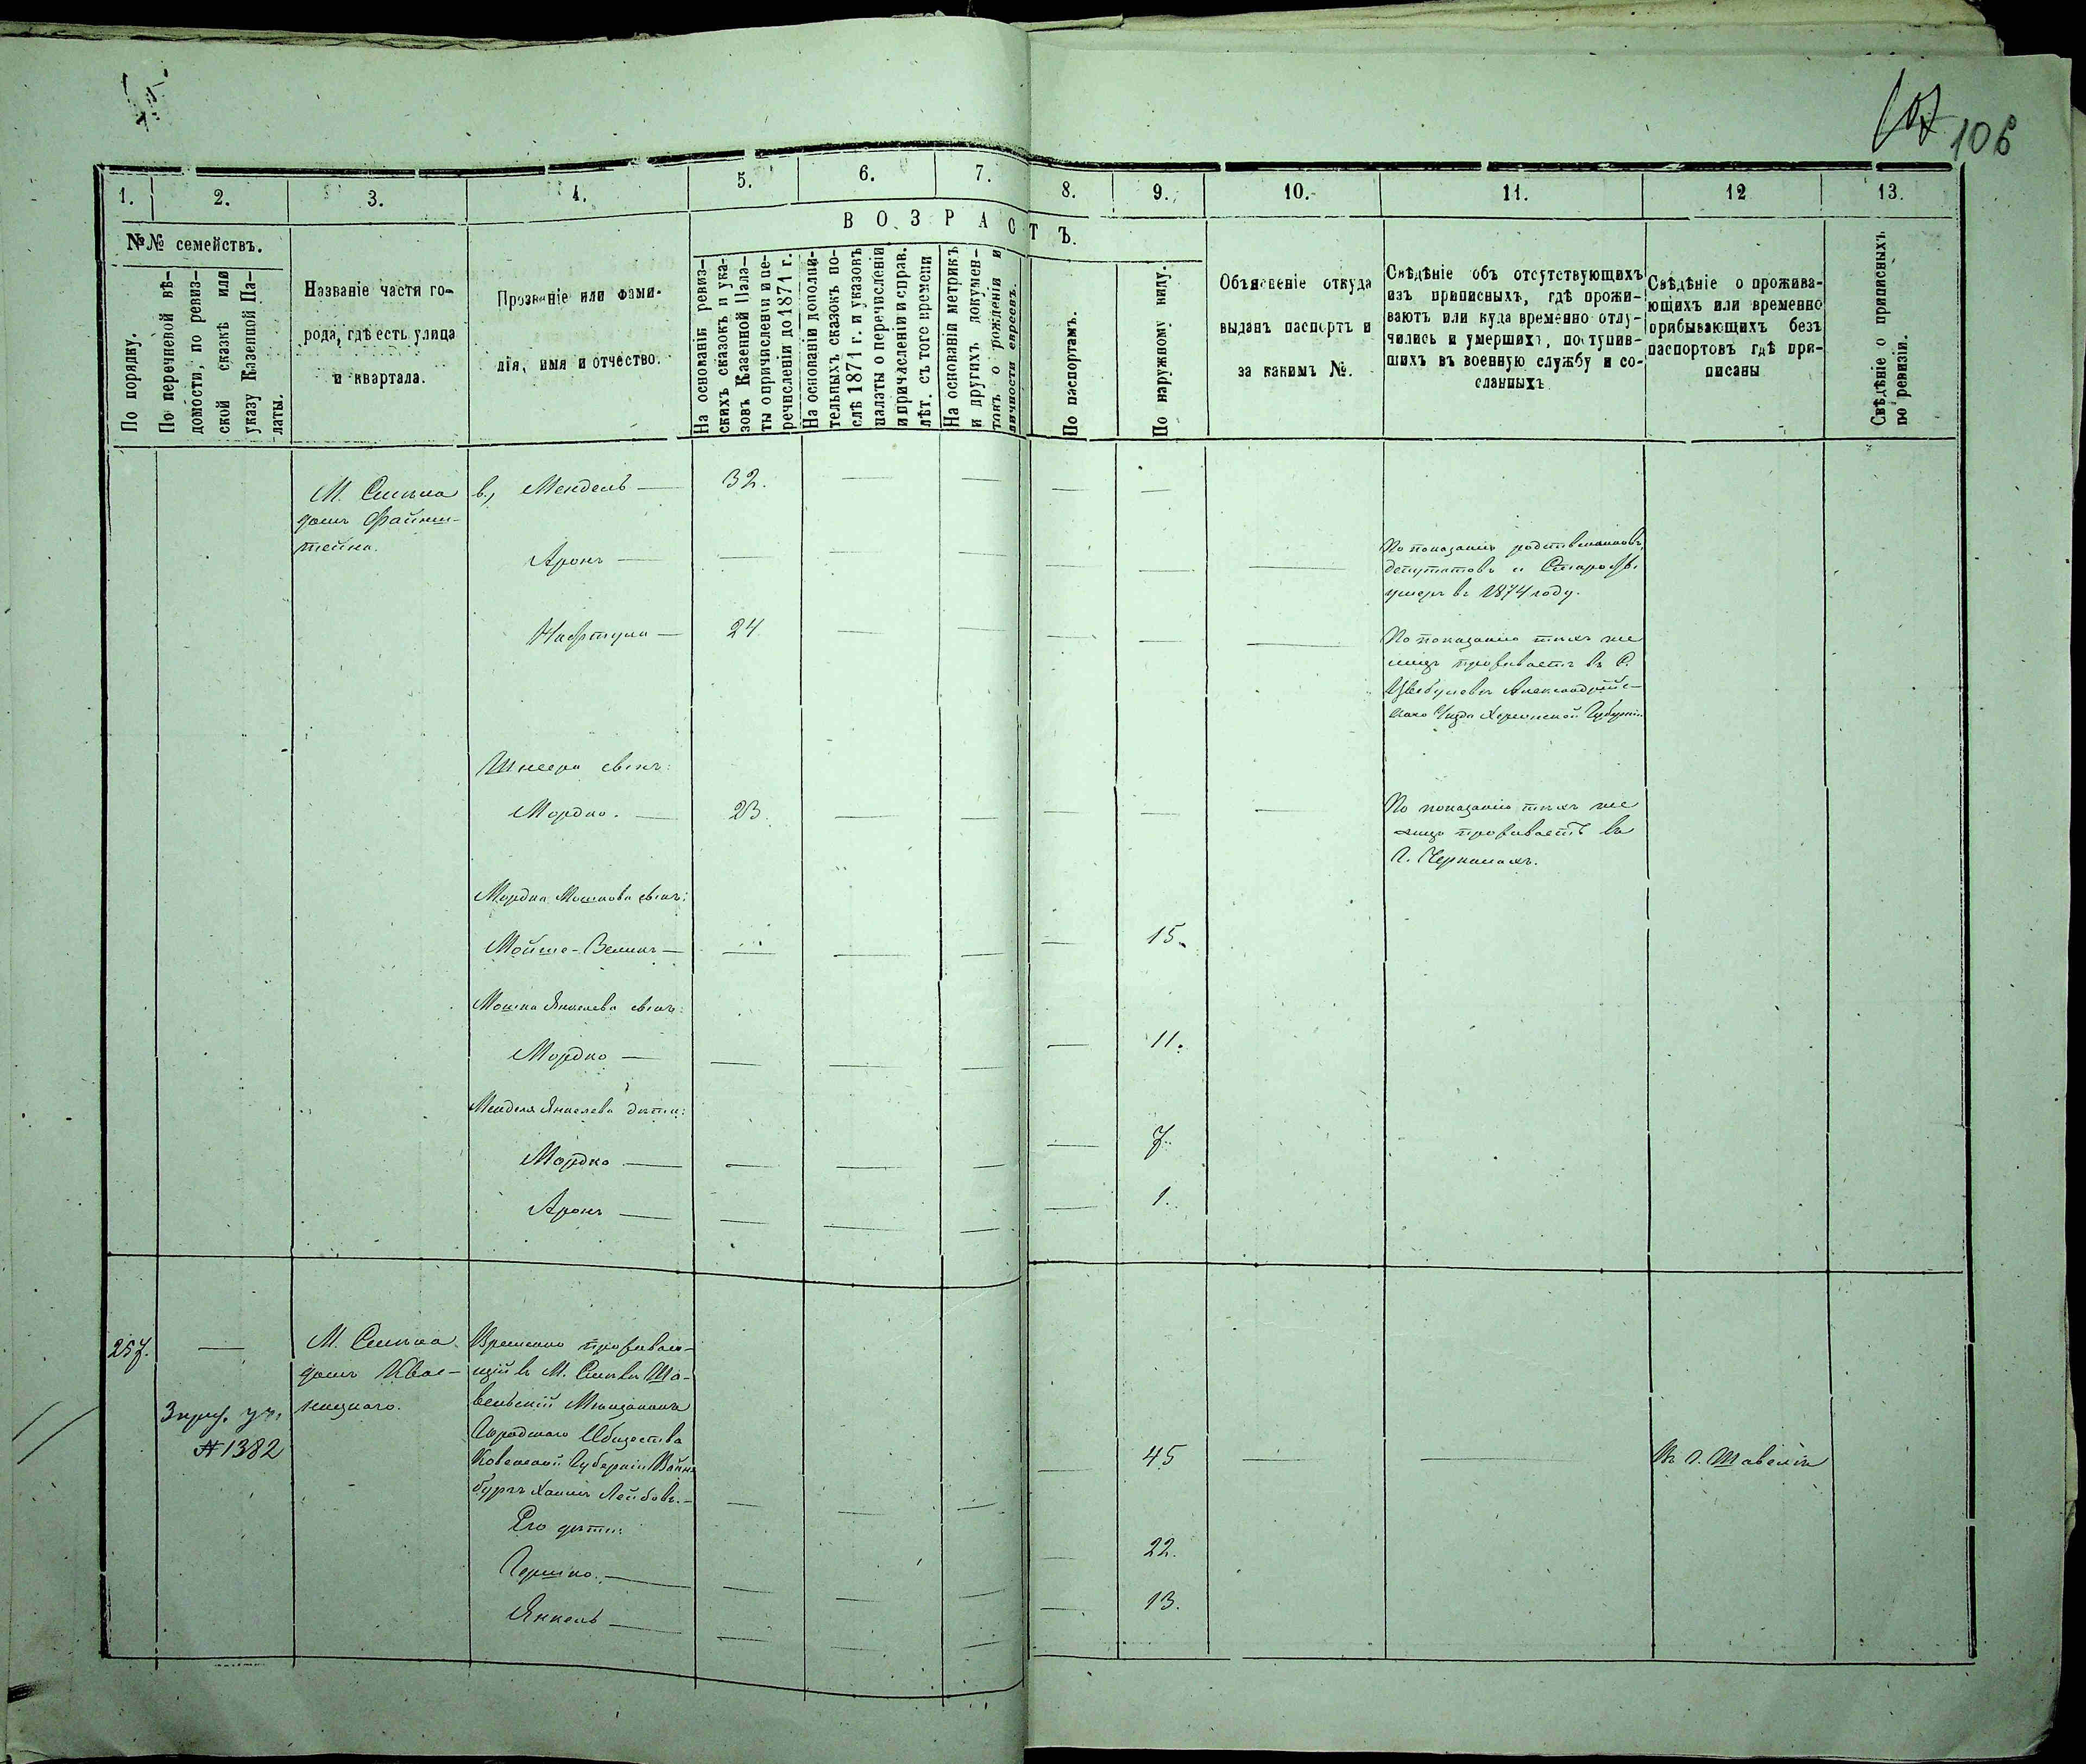 106
1.
2.
3.
4.
5.
6.
7.
8.
9.
10.
11.
12
13.
№№ семействъ.
По порядку.
По перечневой вѣ-
домости, по ревиз-
ской сказкѣ или
указу Казенной Па-
латы.
Названіе части го-
рода, гдѣ есть улица
и квартала.
Прозваніе или фами-
лія, имя и отчество.
ВОЗРАСТЪ.
На основаніи ревиз-
скихъ сказокъ и ука-
зовъ Казенной Пала-
ты о причисленіи и пе-
речисленіи до 1871 г.
На основаніи дополни-
тельныхъ сказокъ по-
слѣ 1871 г. и указовъ
палаты о перечисленіи
и причисленіи и справ.
лѣт. съ того времени
На основаніи метрикъ
и другихъ докумен-
товъ о рожденіи и
личности евреевъ.
По паспортамъ.
По наружному виду.
Объясненіе откуда
выданъ паспортъ и
за какимъ №.
Свѣдѣніе объ отсутствующихъ
изъ приписныхъ, гдѣ прожи-
ваютъ или куда временно отлу-
чились и умершихъ, поступив-
шихъ въ военную службу и со-
сланныхъ.
Свѣдѣніе о прожива-
ющихъ или временно
прибывающихъ безъ
паспортовъ гдѣ при-
писаны
Свѣдѣніе о приписныхъ
по ревизіи.
М. Смѣла
домъ Файнш-
тейна.
в., Мендель — 32. — — — —
Аронъ — — — — — — —
По показанію родственниковъ,
депутатовъ и Старосты
умеръ въ 1874 году.
Нафтула — 24 — — — — —
По показанію тѣхъ же
лицъ проживаетъ въ С.
Цвѣбулевѣ Александрійс-
каго Уѣзда Херсонской Губерніи
Шнеера сынъ:
Мордко. — 23. — — — — —
По показанію тѣхъ же
лицъ проживаетъ въ
Г. Черкасахъ.
Мордка Мошкова сынъ:
Мойше-Зеликъ — — — — — 15.
Мошка Янкелева сынъ:
Мордко — — — 11.
Менделя Янкелева дѣти:
Мордко — — — — — 7.
Аронъ — — — — — 1.
257.
—
3 приз. уч.
№ 1382
М. Смѣла
домъ Квас-
ницкаго.
Временно проживаю-
щій въ М. Смѣлѣ Ша-
вельскій Мѣщанинъ
Городскаго Общества
Ковенской Губерніи Вайн
бургъ Хаимъ Лейбовъ. — — — — — 45 — —
Въ Г. Шавеляхъ
Его дѣти:
Гершко. — — — — — 22.
Янкель — — — — — 13.